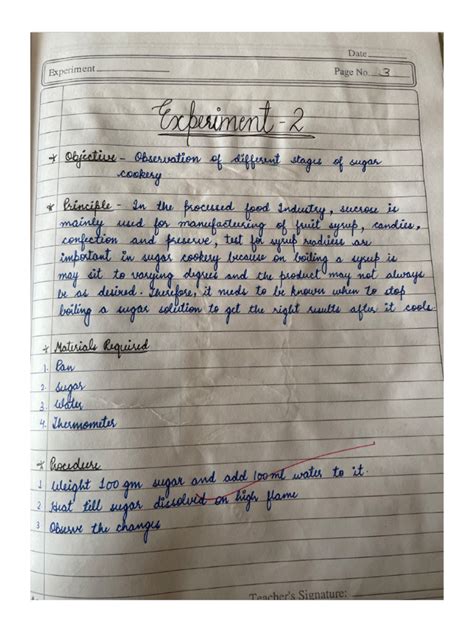 Date
Experiment
Page No. 3
Experiment - 2
* Objective - Observation of different stages of sugar
cookery
* Principle - In the processed food Industry, sucrose is
mainly used for manufacturing of fruit syrup, candies,
confection and preserve, test for syrup readiness are
important in sugar cookery because on boiling a syrup is
may sit to varying degree and the product may not always
be as desired. Therefore, it needs to be known when to stop
boiling a sugar solution to get the right results after it cools.
* Materials Required
1. Pan
2. Sugar
3. Water
4. Thermometer
* Procedure
1 Weight 100 gm sugar and add 100ml water to it.
2 Heat till sugar dissolved on high flame
3 Observe the changes
Teacher's Signature: